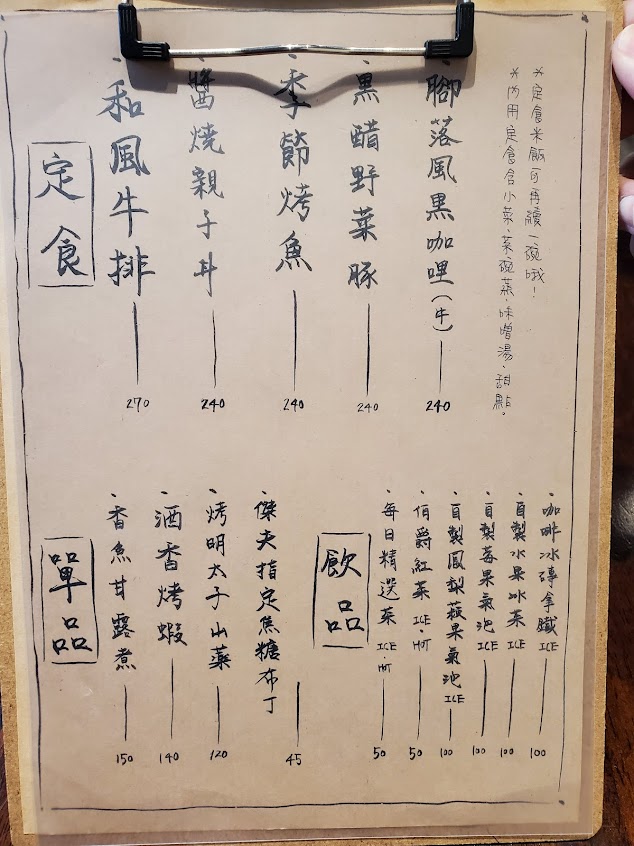 定食
和風牛排 270
醬燒親子丼 240
季節烤魚 240
黑醋野菜豚 240
腳落風黑咖哩(牛) 240
*定食米飯可再續一碗哦!
*內用定食含小菜、茶碗蒸、味噌湯、甜點。
單品
香魚甘露煮 150
酒香烤蝦 140
烤明太子山藥 120
傑夫指定焦糖布丁 45
飲品
每日精選茶 ICE·HOT 50
伯爵紅茶 ICE·HOT 50
自製鳳梨蘋果氣泡 ICE 100
自製莓果氣泡 ICE 100
自製水果冰茶 ICE 100
咖啡冰磚拿鐵 ICE 100